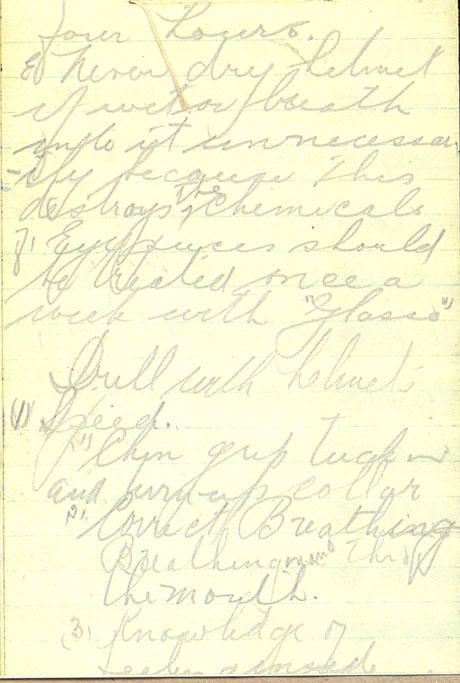 four hours.
6) Never dry helmet
if wet or breath
into it unnecessar
-ily because this
destroys the chemicals
7) Eyepieces should
be treated once a
week with "Glasso"
Drill with helmets
(1) Speed.
"1" Chin grip tuck in
and turn up collar
"2" Correct Breathing
Breathing and thro
the mouth.
(3) Knowledge of